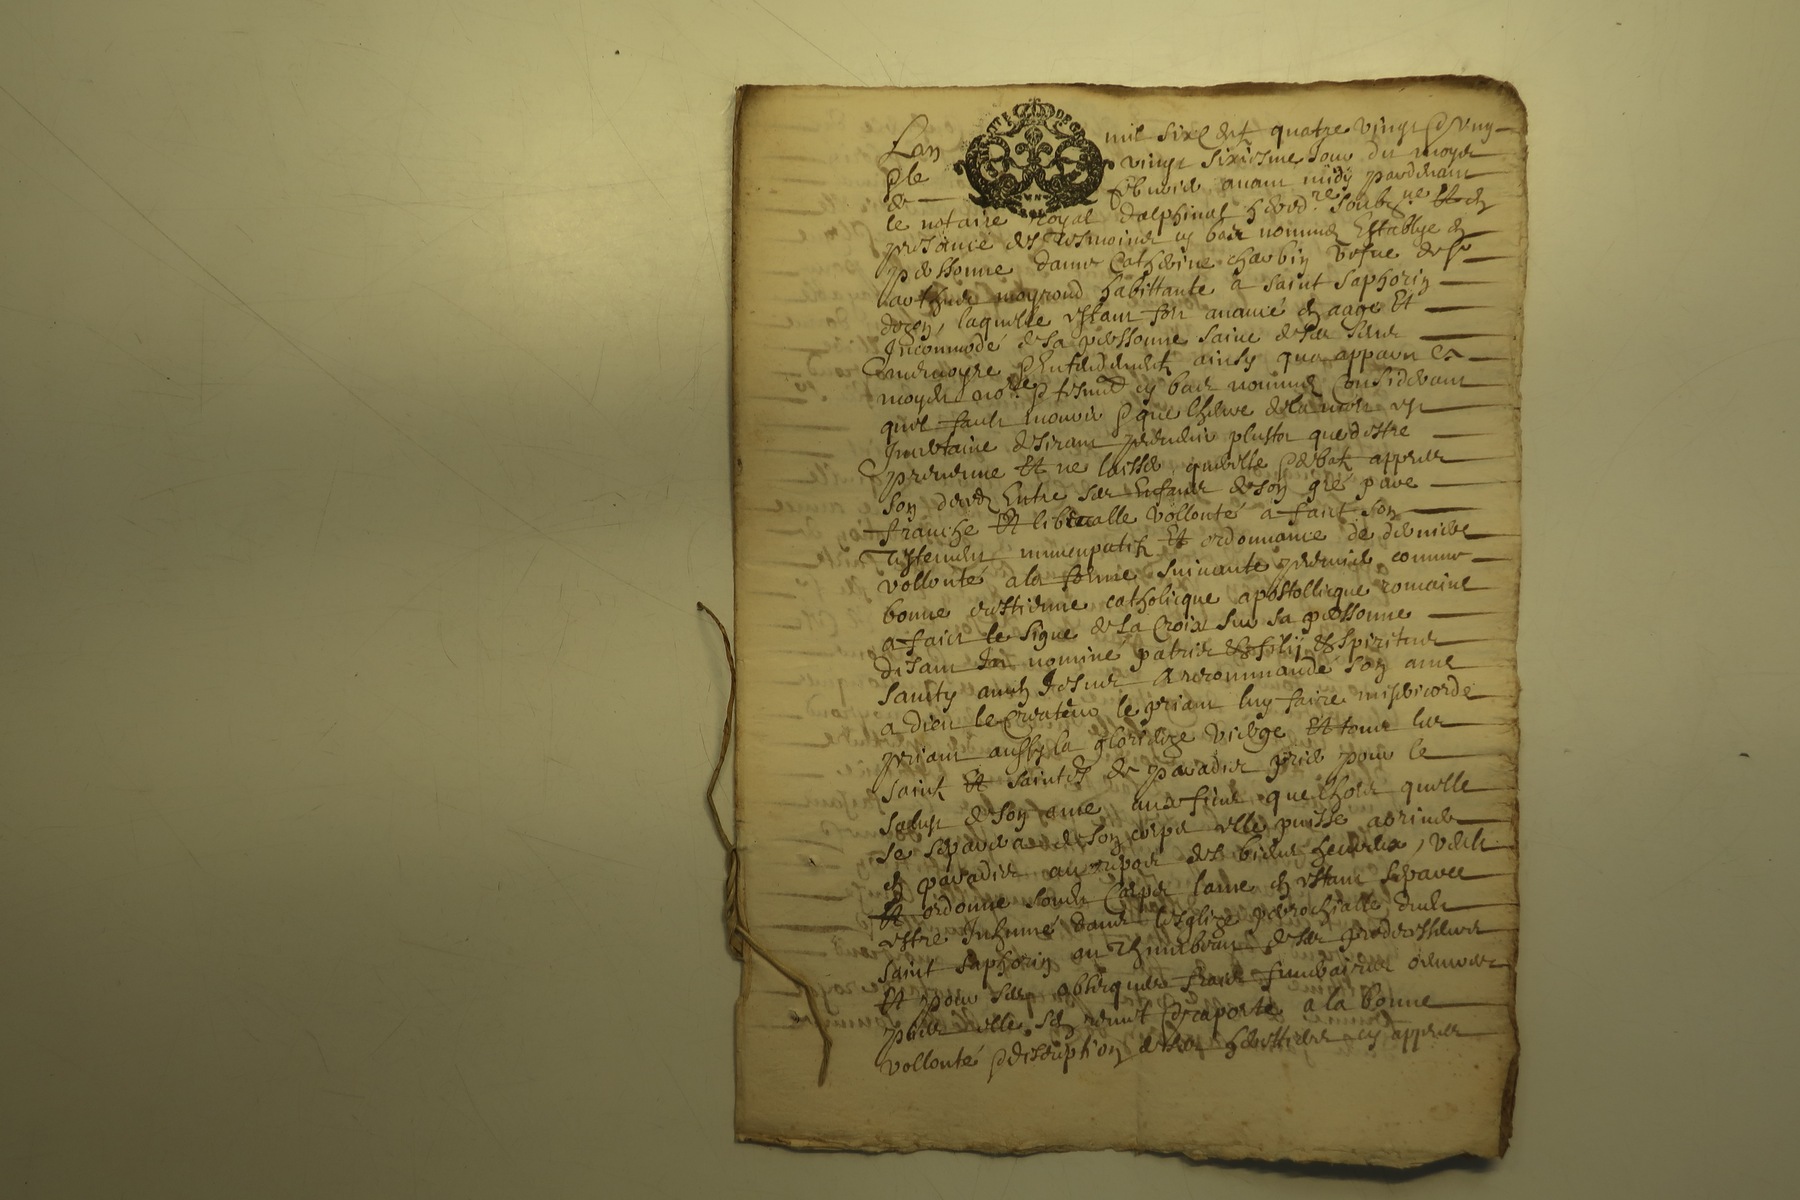 Lan mil six Cent quatre vingt & ung
& le vingt sixiesme Jour du moys
de febvrier avant midy pardevant
le notaire royal dalphinal hered.re soubz.ne Et en
presance des tesmoins cy bas nommes Establye en
personne dame Catherine charbin vefve de s.r
arthus moyroud habittante a saint saphorin
dozon, laquelle estant fort avancé en aage Et
Incommodé de sa personne saine de ses sens
memoyre & entendement ainsy qua apparu es
moyen no.re & tesmo cy bas nommes Considerant
quil fault mourir & que lheure de la mort est
Incertaine desirant prevenir plustot que destre
prevenue Et ne laisser querelle & debat appres
son deces Entre ses Enfans de son gré pure
franche Et liberalle vollonté a faict son
Testement nuncupatif Et ordonnance de derniere
vollonté a la forme suivante premier comme
bonne crestienne catholicque apostollicque romaine
a faict le signe de la Croix sur sa personne
disant In nomine patris & filij & spiritus
sancty amen Jesus A recommandé son ame
a dieu le Createur le priant luy faire misericorde
priant aussy la glorieuze vierge Et tous les
saints Et saintes de paradis prier pour le
salut de son ame aux fins que lhors quelle
se separera de son corps elle puisse arriver
en paradis au repos des biens heureux, veult
Et ordonne sondit Corps lame en estant separee
estre Inhumé dans lesglize parrochialle dudit
saint saphorin au Thumbeau de ses predecesseurs
Et pour ses obseques frais funeraires oeuvres
pies elle sen remet & raporte a la bonne
vollonté & discreption de ses heretiers cy appres